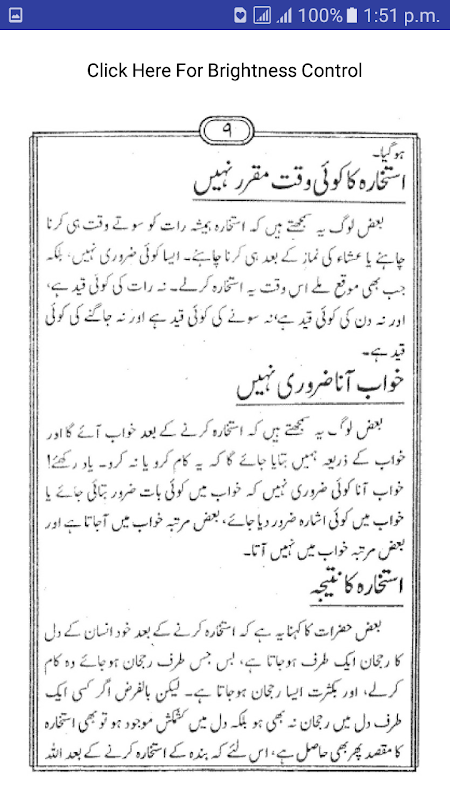 100% 1:51 p.m.
Click Here For Brightness Control
۹
ہو گیا۔
استخارہ کا کوئی وقت مقرر نہیں
بعض لوگ یہ سمجھتے ہیں کہ استخارہ ہمیشہ رات کو سوتے وقت ہی کرنا
چاہئے یا عشاء کی نماز کے بعد ہی کرنا چاہئے۔ ایسا کوئی ضروری نہیں، بلکہ
جب بھی موقع ملے اس وقت یہ استخارہ کرلے۔ نہ رات کی کوئی قید ہے،
اور نہ دن کی کوئی قید ہے، نہ سونے کی کوئی قید ہے اور نہ جاگنے کی کوئی
قید ہے۔
خواب آنا ضروری نہیں
بعض لوگ یہ سمجھتے ہیں کہ استخارہ کرنے کے بعد خواب آئے گا اور
خواب کے ذریعہ ہمیں بتایا جائے گا کہ یہ کام کرو یا نہ کرو۔ یاد رکھئے!
خواب آنا کوئی ضروری نہیں کہ خواب میں کوئی بات ضرور بتائی جائے یا
خواب میں کوئی اشارہ ضرور دیا جائے، بعض مرتبہ خواب میں آجاتا ہے اور
بعض مرتبہ خواب میں نہیں آتا۔
استخارہ کا نتیجہ
بعض حضرات کا کہنا یہ ہے کہ استخارہ کرنے کے بعد خود انسان کے دل
کا رجحان ایک طرف ہوجاتا ہے، بس جس طرف رجحان ہوجائے وہ کام
کرلے، اور بکثرت ایسا رجحان ہوجاتا ہے۔ لیکن بالفرض اگر کسی ایک
طرف دل میں رجحان نہ بھی ہو بلکہ دل میں کشمکش موجود ہو تو بھی استخارہ
کا مقصد پھر بھی حاصل ہے، اس لئے کہ بندہ کے استخارہ کرنے کے بعد اللہ